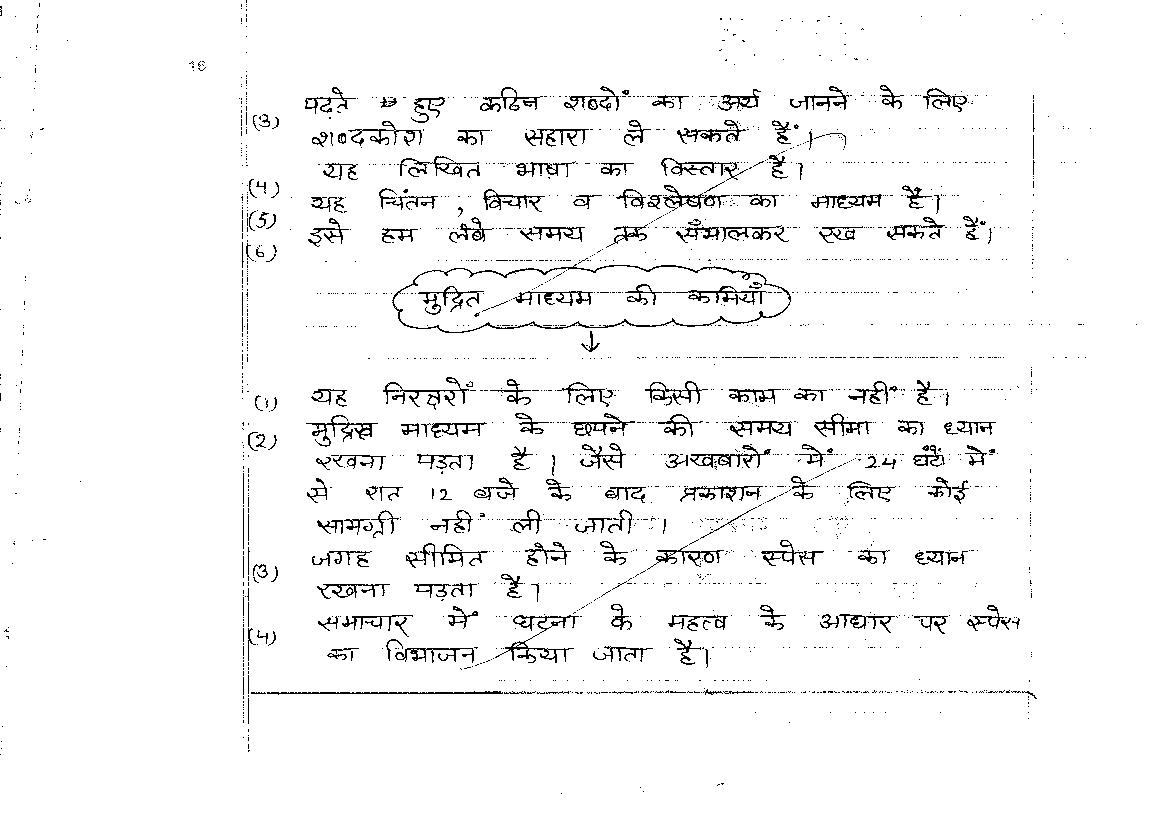 16
पढ़ते हुए कठिन शब्दों का अर्थ जानने के लिए
(3) शब्दकोश का सहारा ले सकते हैं।
यह लिखित भाषा का विस्तार है।
(4) यह चिंतन, विचार व विश्लेषण का माध्यम है।
(5) इसे हम लंबे समय तक सँभालकर रख सकते हैं।
(6)
मुद्रित माध्यम की कमियाँ
↓
(1) यह निरक्षरों के लिए किसी काम का नहीं है।
(2) मुद्रित माध्यम के छपने की समय सीमा का ध्यान
रखना पड़ता है। जैसे अखबारों में 24 घंटों में
से रात 12 बजे के बाद प्रकाशन के लिए कोई
सामग्री नहीं ली जाती।
(3) जगह सीमित होने के कारण स्पेस का ध्यान
रखना पड़ता है।
(4) समाचार में घटना के महत्व के आधार पर स्पेस
का विभाजन किया जाता है।